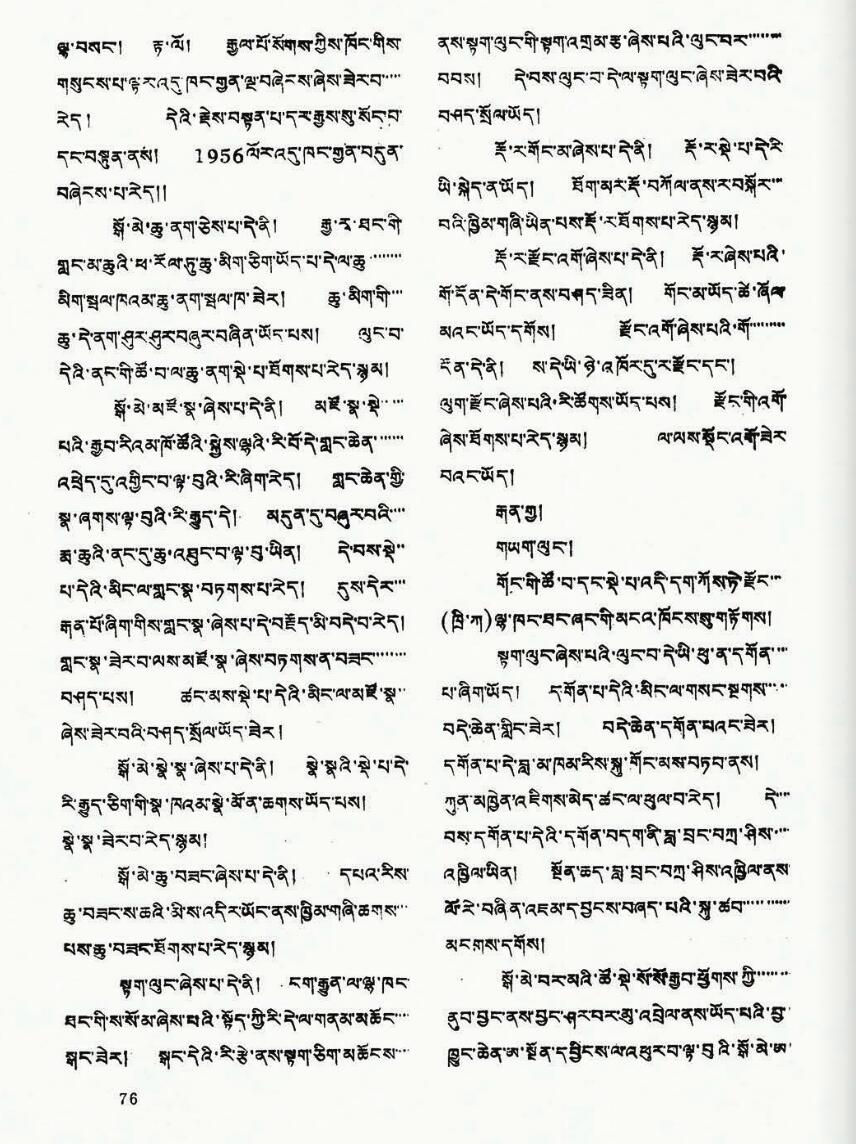 ལྷ་བསང་། རྟ་ལོ། རྒྱལ་པོ་སོགས་ཀྱིས་ཁོང་གིས
གསུངས་པ་ལྟར་འདུ་ཁང་གྱན་ལྔ་བཞེངས་ཞེས་ཟེར་བ་
རེད། དེའི་རྗེས་བསྟན་པ་དར་རྒྱས་སུ་སོང་བ་
དང་བསྟུན་ནས། 1956ལོར་འདུ་ཁང་གྱན་བདུན་
བཞེངས་པ་རེད།།
སྒོ་མེ་ཆུ་ནག་ཅེས་པ་དེ་ནི། རྒྱ་ར་ཐང་གི
གླང་མ་ཆུའི་ཕ་རོལ་ཏུ་ཆུ་མིག་ཅིག་ཡོད་པ་དེ་ལ་ཆུ་
མིག་སྦྲལ་ཁའམ་ཆུ་ནག་སྦྲལ་ཁ་ཟེར། ཆུ་མིག་གི་
ཆུ་དེ་ནག་ཤུར་ཤུར་བཞུར་བཞིན་ཡོད་པས། ལུང་བ་
དེའི་ནང་གི་ཚོ་བ་ལ་ཆུ་ནག་སྡེ་པ་ཐོགས་པ་རེད་སྙམ།
སྒོ་མེ་མཛོ་སྣ་ཞེས་པ་དེ་ནི། མཛོ་སྣ་སྡེ་
པའི་རྒྱབ་རིའམ་ཁོ་ཚོའི་སྐྱེས་ལྷའི་རི་བོ་དེ་གླང་ཆེན་
འཕྲེད་དུ་འགྱིང་བ་ལྟ་བུའི་རི་ཞིག་རེད། གླང་ཆེན་གྱི་
སྣ་ཞགས་ལྟ་བུའི་རི་རྒྱུད་དེ། མདུན་དུ་བཞུར་བའི་
རྨ་ཆུའི་ནང་དུ་ཆུ་འཐུང་བ་ལྟ་བུ་ཡིན། དེ་བས་སྡེ་
པ་དེའི་མིང་ལ་གླང་སྣ་བཏགས་པ་རེད། དུས་དེར་
རྒན་པོ་ཞིག་གིས་གླང་སྣ་ཞེས་པ་དེ་བརྗོད་མི་བདེ་བ་རེད།
གླང་སྣ་ཟེར་བ་ལས་མཛོ་སྣ་ཞེས་བཏགས་ན་བཟང་
བཤད་པས། ཚང་མས་སྡེ་པ་དེའི་མིང་ལ་མཛོ་སྣ་
ཞེས་ཟེར་བའི་བཤད་སྲོལ་ཡོད་ཟེར།
སྒོ་མེ་སྣེ་སྣ་ཞེས་པ་དེ་ནི། སྣེ་སྣའི་སྡེ་པ་དེ་
རི་རྒྱུད་ཅིག་གི་སྣ་ཁའམ་སྣེ་མོ་ན་ཆགས་ཡོད་པས།
སྣེ་སྣ་ཟེར་བ་རེད་སྙམ།
སྒོ་མེ་ཆུ་བཟང་ཞེས་པ་དེ་ནི། དཔའ་རིས་
ཆུ་བཟང་ས་ཆའི་མི་ས་འདིར་ཡོང་ནས་ཁྱིམ་གཞི་ཆགས་
པས་ཆུ་བཟང་ཐོགས་པ་རེད་སྙམ།
སྟག་ལུང་ཞེས་པ་དེ་ནི། ངག་རྒྱུན་ལ་ལྷ་ཁང་
ཐང་གི་ས་སོ་མ་ཞེས་པའི་སྟོད་ཀྱི་རི་དེ་ལ་གནམ་མཚོང་
སྒང་ཟེར། སྒང་དེའི་རི་རྩེ་ནས་སྟག་ཅིག་མཆོངས་
ནས་སྟག་ལུང་གི་སྟག་འགྲམ་རྩ་ཞེས་པའི་ལུང་བར་
བབས། དེ་བས་ལུང་བ་དེ་ལ་སྟག་ལུང་ཞེས་ཟེར་བའི་
བཤད་སྲོལ་ཡོད།
རྡོ་ར་གོང་མ་ཞེས་པ་དེ་ནི། རྡོ་ར་སྡེ་པ་དེ་རི
ཡི་སྐེད་ན་ཡོད། ཐོག་མར་རྡོ་བཀོལ་ནས་ར་བསྐོར་
བའི་ཁྱིམ་གཞི་ཡིན་པས་རྡོ་ར་ཐོགས་པ་རེད་སྙམ།
རྡོ་ར་རྫོང་འགོ་ཞེས་པ་དེ་ནི། རྡོ་ར་ཞེས་པའི་
གོ་དོན་དེ་གོང་ནས་བཤད་ཟིན། གོང་མ་ཡོད་ཚེ་ཞོལ
མའང་ཡོད་དགོས། རྫོང་འགོ་ཞེས་པའི་གོ་
དོན་དེ་ནི། ས་དེ་ཡི་ཉེ་འཁོར་དུ་ར་རྫོང་དང་།
ལུག་རྫོང་ཞེས་པའི་རི་ཚོགས་ཡོད་པས། རྫོང་གི་འགོ
ཞེས་ཐོགས་པ་རེད་སྙམ། ལ་ལས་སྡོང་འགོ་ཟེར
བའང་ཡོད།
རྒན་ཀྱ།
གཡག་ལུང་།
གོང་གི་ཚོ་བ་དང་སྡེ་པ་འདི་དག་ཀོས་ཏེ་རྫོང་
(ཁྲི་ཀ)ལྷ་ཁང་ཐང་ཞང་གི་མངའ་ཁོངས་སུ་གཏོགས།
སྟག་ལུང་ཞེས་པའི་ལུང་བ་དེ་ཡི་ཕུ་ན་དགོན་
པ་ཞིག་ཡོད། དགོན་པ་དེའི་མིང་ལ་གསང་སྔགས་
བདེ་ཆེན་གླིང་ཟེར། བདེ་ཆེན་དགོན་པའང་ཟེར།
དགོན་པ་དེ་བླ་མ་ཁམ་རིས་སྐུ་གོང་མས་བཏབ་ནས།
ཀུན་མཁྱེན་འཇིགས་མེད་ཚང་ལ་ཕུལ་བ་རེད། དེ་
བས་དགོན་པ་དེའི་དགོན་བདག་ནི་བླ་བྲང་བཀྲ་ཤིས་
འཁྱིལ་ཡིན། སྔོན་ཆད་བླ་བྲང་བཀྲ་ཤིས་འཁྱིལ་ནས
ལོ་རེ་བཞིན་འཇམ་དབྱངས་བཞད་པའི་སྐུ་ཚབ་
མངགས་དགོས།
སྒོ་མེ་བར་མའི་ཚོ་སྡེ་སོ་སོ་རྒྱབ་ཕྱོགས་ཀྱི་
ནུབ་བྱང་ནས་བྱང་ཤར་བར་མུ་འབྲེལ་ནས་ཡོད་པའི་བྱ་
ཁྱུང་ཆེན་ཨ་སྔོན་དབྱིངས་ལ་འཕུར་བ་ལྟ་བུའི་སྒོ་མེ་ཨ་
76